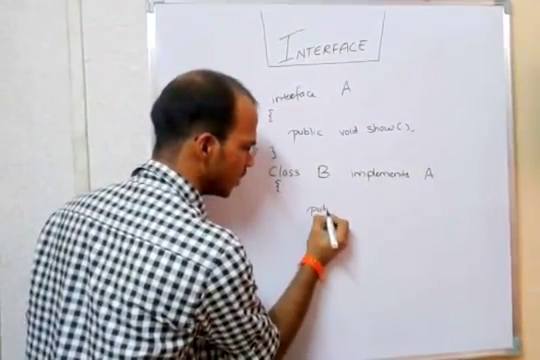 INTERFACE
interface A
{
public void show();
}
Class B implements A
{
pub